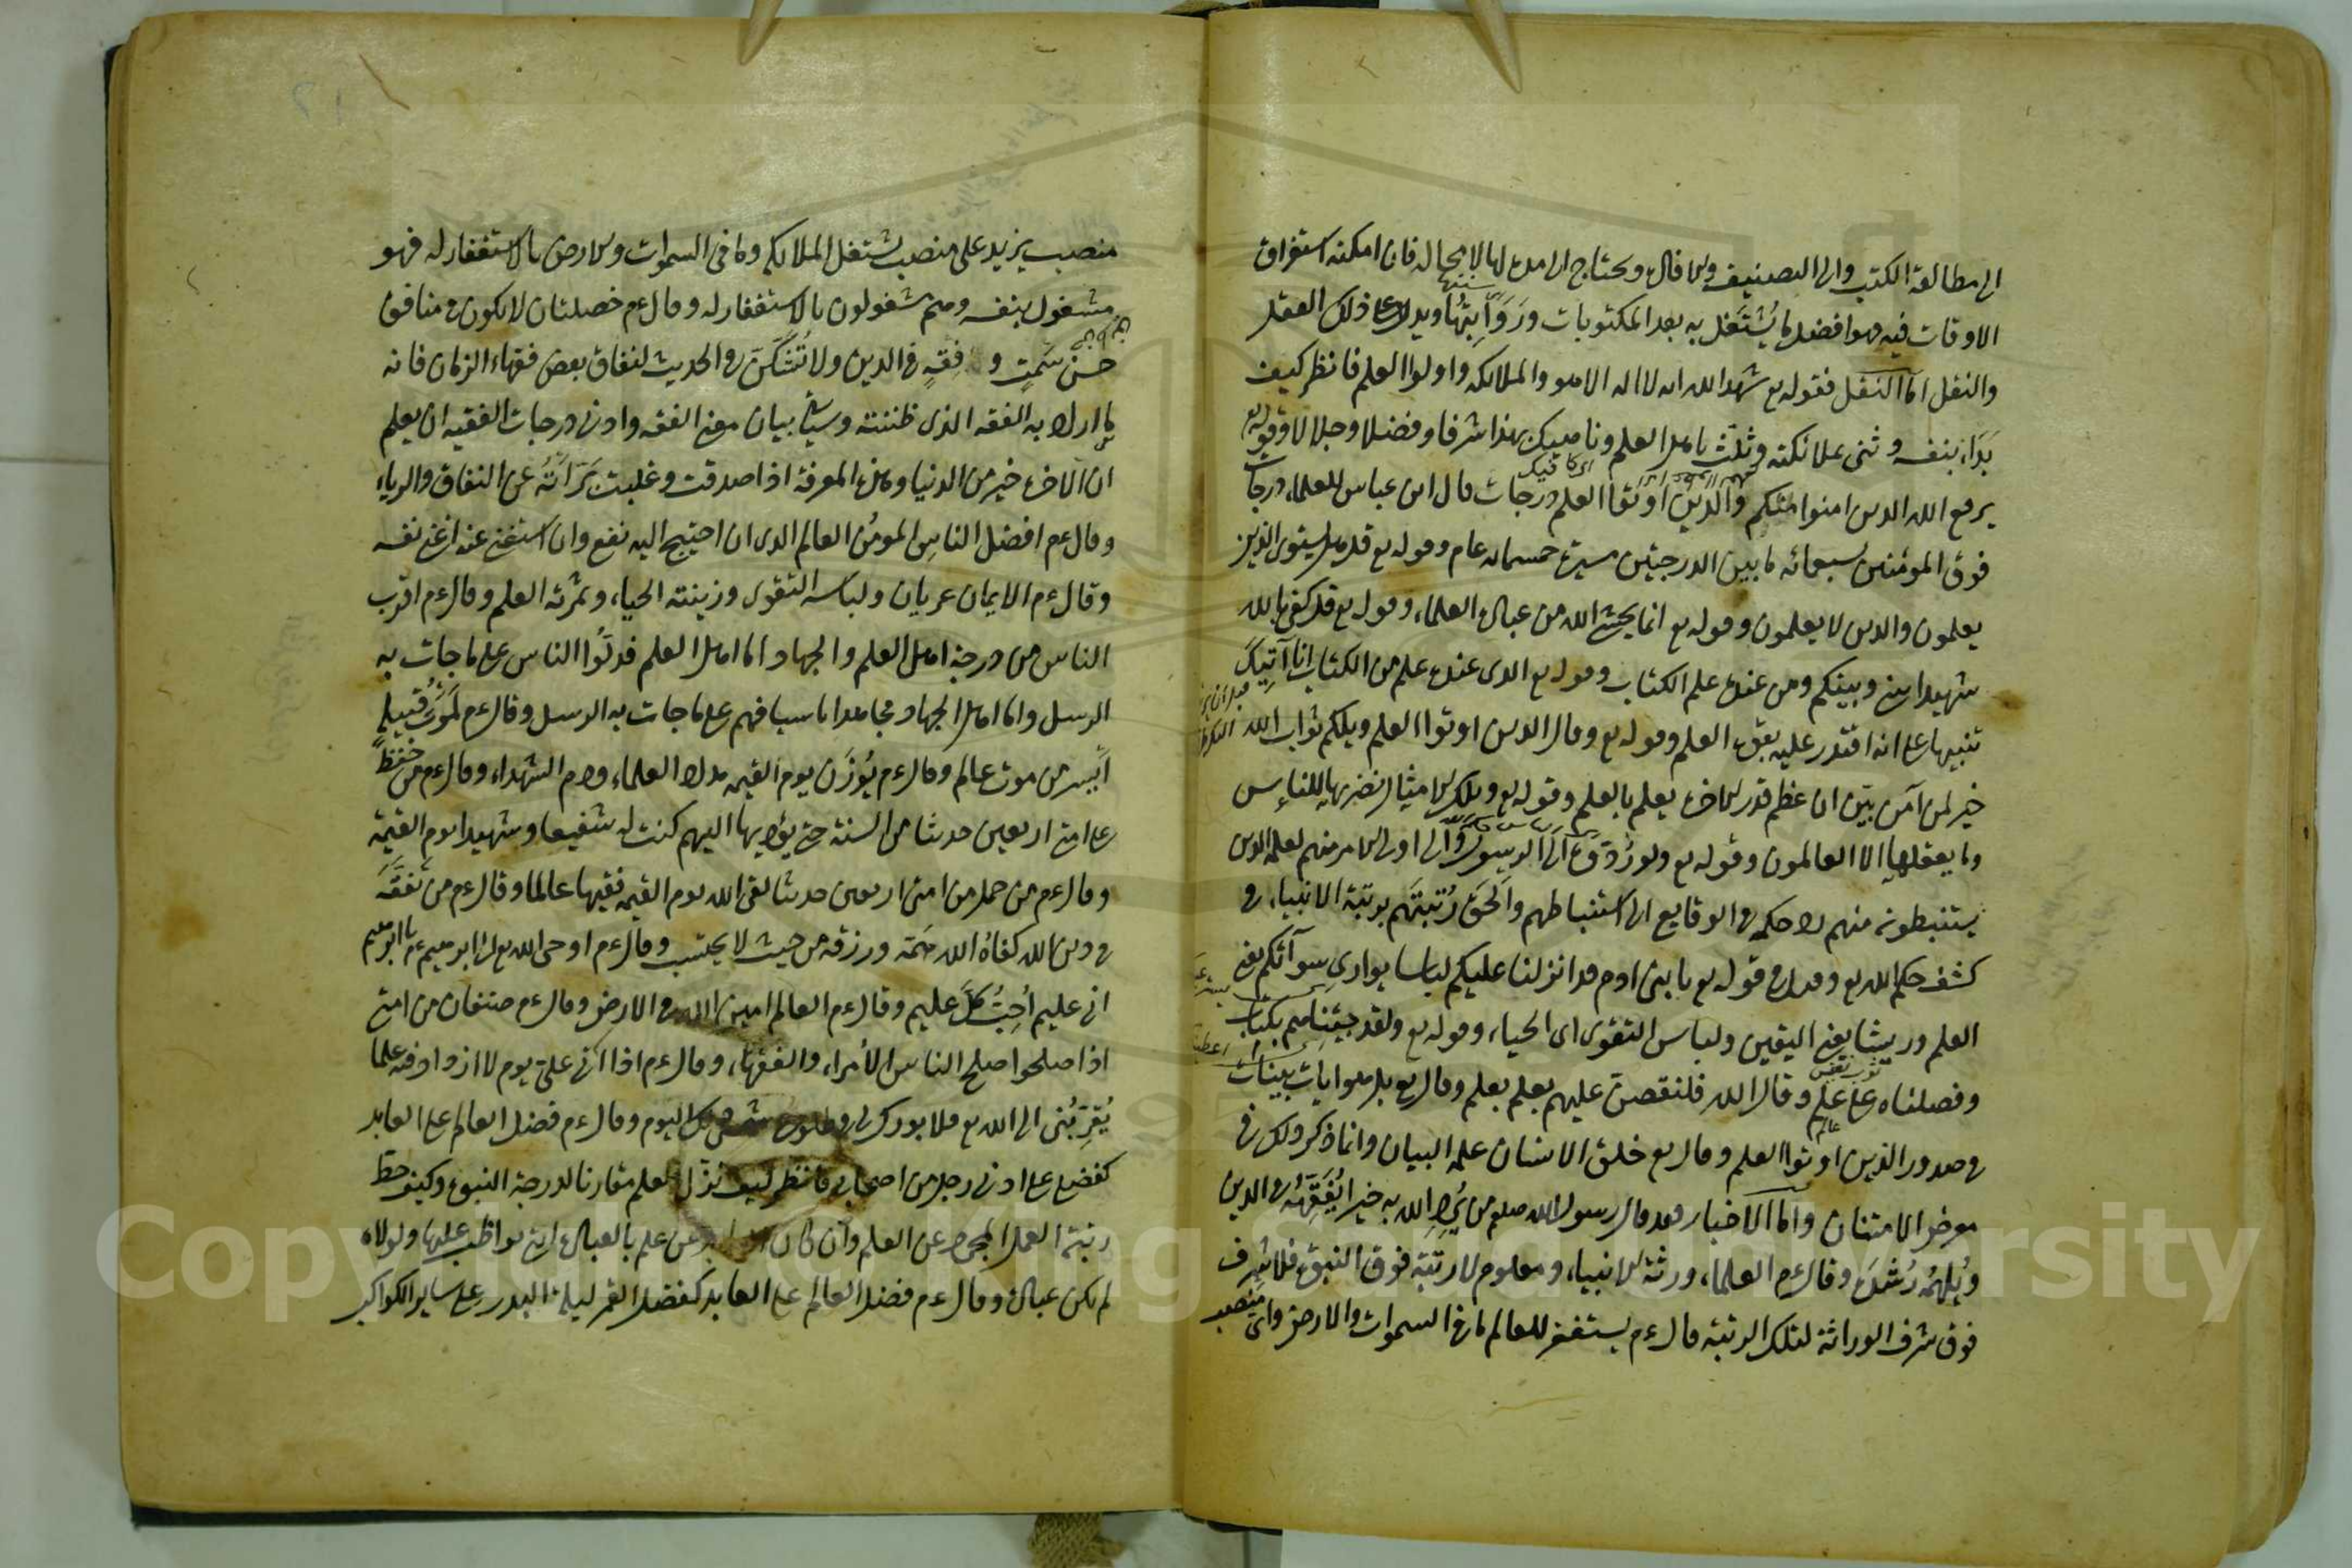 الى مطالعة الكتب والى التصنيف والافادة ويحتاج الى مدة لها لا محالة فان امكنه استغراق
الاوقات فيه فهو افضل ما يشتغل به بعد المكتوبات ورواتبها ويدل على ذلك العقل
والنقل اما النقل فقوله تع شهد الله انه لا اله الا هو والملائكة واولوا العلم فانظر كيف
بداء بنفسه وثنى بملائكته وثلث باهل العلم وناهيك بهذا شرفا وفضلا وجلالا وقوله تع
يرفع الله الذين امنوا منكم والذين اوتوا العلم درجات قال ابن عباس للعلماء درجات
فوق المؤمنين بسبعمائه ما بين الدرجتين مسيرة خمسمائه عام وقوله تع قل هل يستوى الذين
يعلمون والذين لا يعلمون وقوله تع انما يخشى الله من عباده العلماء وقوله تع قل كفى بالله
شهيدا بينى وبينكم ومن عنده علم الكتاب وقوله تع الذى عنده علم من الكتاب انا آتيك
تنبيها على انه اقتدر عليه بقوة العلم وقوله تع وقال الذين اوتوا العلم ويلكم ثواب الله
خير لمن آمن بين ان عظم قدر الاخرة يعلم بالعلم وقوله تع وتلك الامثال نضربها للناس
وما يعقلها الا العالمون وقوله تع ولو ردوه الى الرسول والى اولى الامر منهم لعلمه الذين
يستنبطونه منهم رد حكمه فى الوقايع الى استنباطهم والحق رتبتهم برتبة الانبياء فى
كشف حكم الله تع وقيل فى قوله تع يا بنى ادم قد انزلنا عليكم لباسا يوارى سوآتكم يعنى
العلم وريشا يعنى اليقين ولباس التقوى اى الحياء وقوله تع ولقد جئناهم بكتاب
وفصلناه على علم وقال الله فلنقصن عليهم بعلم وقال تع بل هو ايات بينات
فى صدور الذين اوتوا العلم وقال تع خلق الانسان علمه البيان وانما ذكر ذلك فى
معرض الامتنان واما الاخبار فقد قال رسول الله صلعم من يرد الله به خيرا يفقهه فى الدين
ويلهمه رشده وقال ءم العلماء ورثة الانبياء ومعلوم لا رتبة فوق النبوة فلا شرف
فوق شرف الوراثة لتلك الرتبة قال ءم يستغفر للعالم ما فى السموات والارض واى منصب
منصب يزيد على منصب يشتغل الملايكه وما فى السموات والارض بالاستغفار له فهو
مشغول بنفسه وهم مشغولون بالاستغفار له وقال ءم خصلتان لا يكون فى منافق
حسن سمت و فقه فى الدين ولا تشكن فى الحديث لنفاق بعض فقهاء الزمان فانه
ما اراد به الفقه الذى ظننته وسيأتى بيان معنى الفقه وادنى درجات الفقيه ان يعلم
ان الاخرة خير من الدنيا وهذه المعرفة اذا صدقت وغلبت برأته عن النفاق والرياء
وقال ءم افضل الناس المومن العالم الذى ان احتيج اليه نفع وان استغنى عنه اغنى نفسه
وقال ءم الايمان عريان ولباسه التقوى وزينته الحياء وثمرته العلم وقال ءم اقرب
الناس من درجة اهل العلم والجهاد اما اهل العلم فدلوا الناس على ما جات به
الرسل واما اهل الجهاد فجاهدوا باسيافهم على ما جات به الرسل وقال ءم لموت قبيلة
أيسر من موت عالم وقال ءم يوزن يوم القيمه مداد العلماء ودم الشهداء وقال ءم من حفظ
على امتى اربعين حديثا من السنة حتى يؤديها اليهم كنت له شفيعا وشهيدا يوم القيمة
وقال ءم من حمل من امتى اربعين حديثا لقى الله يوم القيمه فقيها عالما وقال ءم من تفقه
فى دين الله كفاه الله همه ورزقه من حيث لا يحتسب وقال ءم اوحى الله تع الى ابرهيم ءم يا ابرهيم
انى عليم أحب كل عليم وقال ءم العالم امين الله فى الارض وقال ءم صنفان من امتى
اذا صلحوا صلح الناس الأمراء والفقهاء وقال ءم اذا اتى على يوم لا ازداد فيه علما
يقربنى الى الله تع فلا بورك لى فى طلوع شمس ذلك اليوم وقال ءم فضل العالم على العابد
كفضلى على ادنى رجل من اصحابى فانظر كيف نزل العلم مقارنا لدرجة النبوة وكيف حط
رتبة العمل المجرد عن العلم وان كان العابد عن علم بالعبادة التى يواظب عليها ولولاه
لم تكن عبادة وقال ءم فضل العالم على العابد كفضل القمر ليلة البدر على ساير الكواكب
Copyright © King Saud University